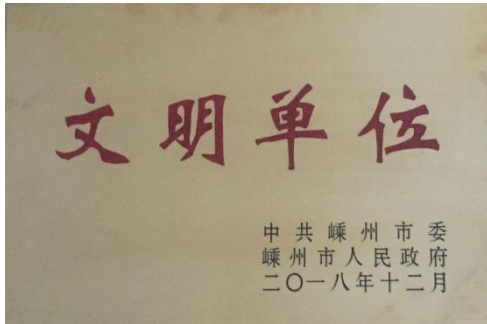 文明单位
中共嵊州市委
嵊州市人民政府
二〇一八年十二月